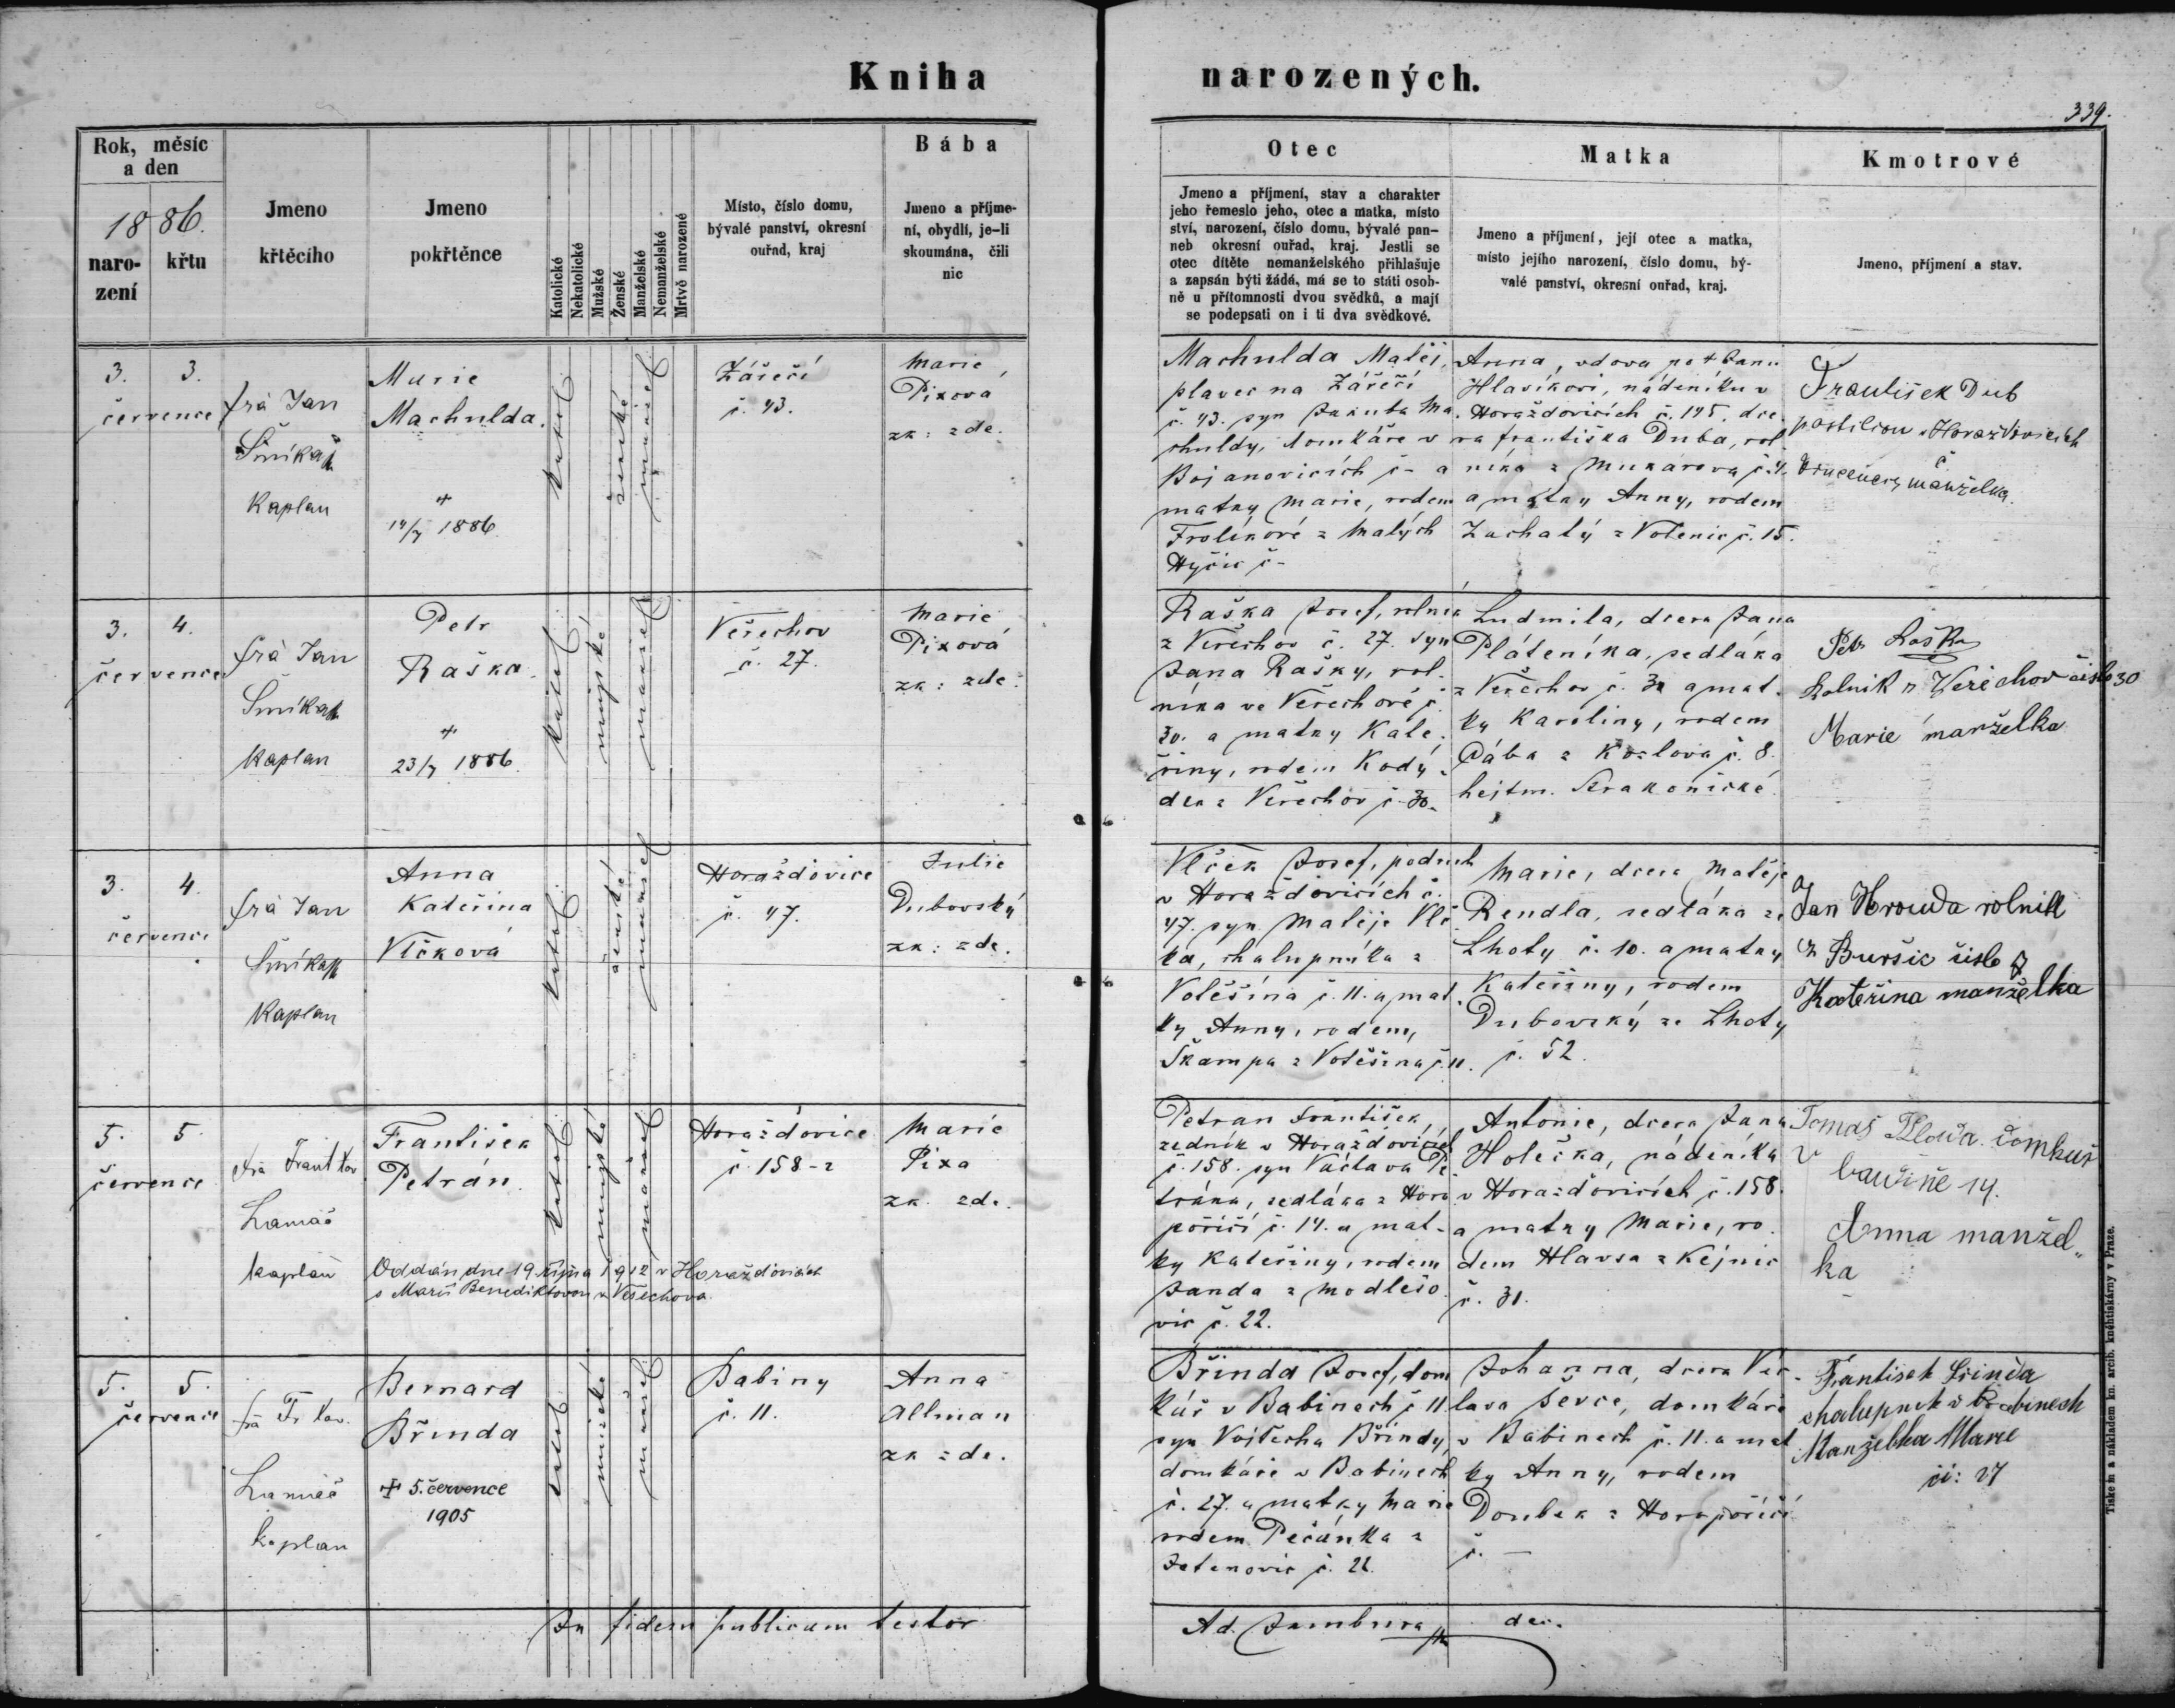 Kniha narozených.
339.
Rok, měsíc
a den
1886.
naro-
zení
křtu
Jmeno
křtěcího
Jmeno
pokřtěnce
Katolické
Nekatolické
Mužské
Ženské
Manželské
Nemanželské
Mrtvě narozené
Místo, číslo domu,
bývalé panství, okresní
ouřad, kraj
Bába
Jmeno a příjme-
ní, obydlí, je-li
skoumána, čili
nic
Otec
Jmeno a příjmení, stav a charakter
jeho řemeslo jeho, otec a matka, místo
ství, narození, číslo domu, bývalé pan-
neb okresní ouřad, kraj. Jestli se
otec dítěte nemanželského přihlašuje
a zapsán býti žádá, má se to státi osob-
ně u přítomnosti dvou svědků, a mají
se podepsati on i ti dva svědkové.
Matka
Jmeno a příjmení, její otec a matka,
místo jejího narození, číslo domu, bý-
valé panství, okresní ouřad, kraj.
Kmotrové
Jmeno, příjmení a stav.
3. 3.
července
frà Jan
kaplan
Marie
Machulda.
+
14/7 1886.
katol
ženské
manžel
Zářečí
č. 43.
Marie
Pixová
zk: zde.
Machulda Matěj,
plavec na Zářečí
č. 43. syn Jakuba Ma
chuldy, domkáře v
Bojanovicích č - a
matky Marie, rodem
Frolíkové z Malých
Hyčic č -
Anna, vdova po + Janu
Hlasíkovi, nádeníku v
Horažďovicích č. 125. dce
ra františka Duba, rol
níka z Mukařova č. 4.
a matky Anny, rodem
Zachatý z Volenic č. 15.
František Dub
postilion Horažďovicích
manželka.
3. 4.
července
frà Jan
kaplan
Petr
Raška.
+
23/7 1886.
katol
mužské
manžel
Věřechov
č. 27.
Marie
Pixová
zk: zde.
Raška Josef, rolník
z Věřechov č. 27. syn
Jana Rašky, rol-
níka ve Věřechově č.
30. a matky Kate-
řiny, rodem Kodý-
dek z Věřechov č. 30.
Ludmila, dcera Jana
Pláteníka, sedláka
z Věřechov č. 32 a mat-
ky Karoliny, rodem
Cába z Kozlova č. 8.
hejtm. Strakonické
Petr Raška
Rolník z Věřechov číslo 30
Marie manželka
3. 4.
července
frà Jan
kaplan
Anna
Kateřina
Vlčková
katol
ženské
manžel
Horažďovice
č. 47.
Julie
Dubovský
zk: zde.
Vlček Josef, podruh
v Horažďovicích č.
47. syn Matěje Vlč
ka, chalupníka z
Volešína č. 11. a mat
ky Anny, rodem,
Škampa z Volešína č. 11.
Marie, dcera Matěje
Rendla, sedláka ze
Lhoty č. 10. a matky
Kateřiny, rodem
Dubovský ze Lhoty
č. 52.
Jan Hrouda rolník
z Buršic číslo 7
Kateřina manželka
5. 5.
července
frà Frant Xav
kaplan
František
Petrán.
Oddán dne 19. října 1912 v Horažďovicích
s Marií Benediktovou z Věřechova.
katol
mužské
manžel
Horažďovice
č. 158-2
Marie
Pixa
zk. zde.
Petran František,
zedník v Horažďovicích
č. 158. syn Václava Pe
trána, sedláka z Hora
poříčí č. 14. a mat-
ky Kateřiny, rodem
Janda z Modlešo
vic č. 22.
Antonie, dcera Jana
Holečka, nádeníka
v Horažďovicích č. 158.
a matky Marie, ro
dem Hlavsa z Kejnic
č. 31.
Tomáš domkář
v
14.
Anna manžel-
ka
5. 5.
července
frà Fr Xav.
kaplan
Bernard
Břinda
+ 5. července
1905
katol
mužské
manžel
Babiny
č. 11.
Anna
Allman
zk zde.
Břinda Josef, dom
kář v Babinech č 11
syn Vojtěcha Břindy,
domkáře v Babinech
č. 27. a matky Marie
rodem Pečánka z
Jetenovic č. 22.
Johanna, dcera Vác-
lava Ševce, domkáře
v Babinech č. 11. a mat
ky Anny, rodem
Doubek z Horopoříčí
č. —
František Břinda
chalupník v Babinech
Manželka Marie
či: 27
In fidem publicam testor
Ad. Jambura
děk.
Tiskem a nákladem kn. arcib. kněhtiskárny v Praze.